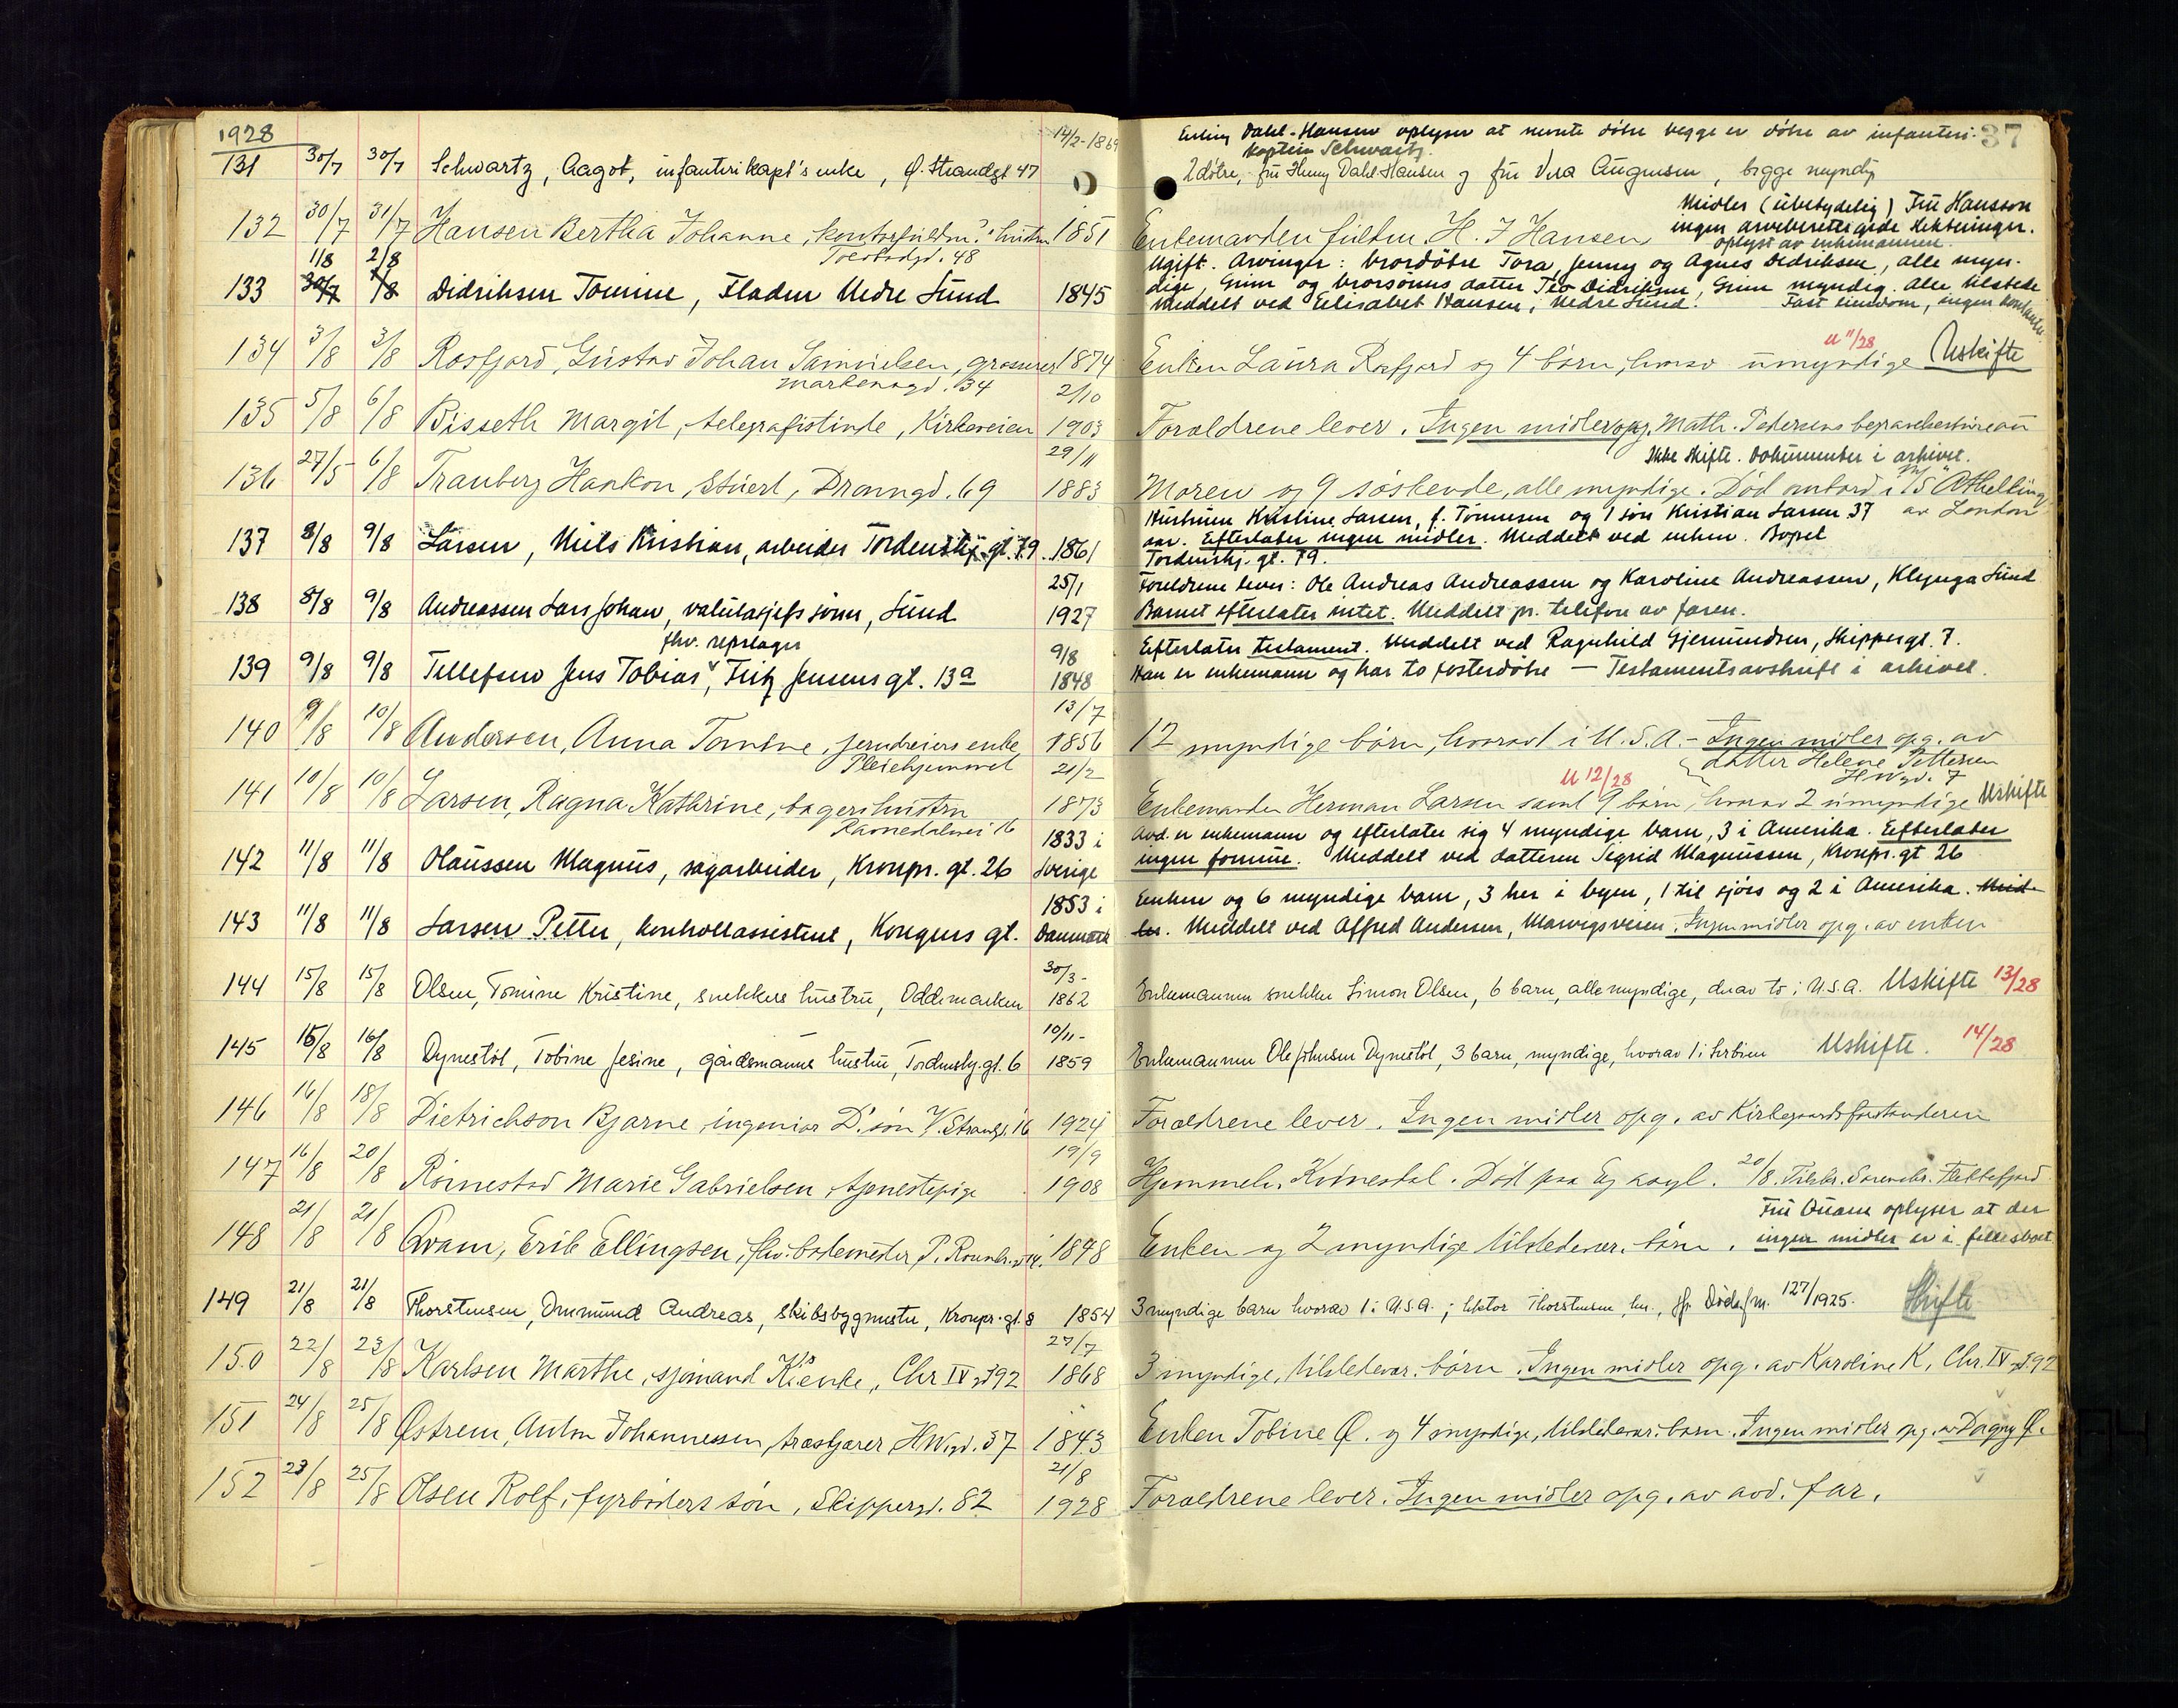 1928
37
14/2-1869
Erling Dahl-Hansen oplyser at nevnte døtre begge er døtre av infanteri-
kaptein Schwartz.
131 30/7 30/7 Schwartz, Aagot, infanterikapt's enke, Ø. Strandgt 47
2 døtre, fru Henny Dahl-Hansen og fru Vera Augensen, begge myndig
Midler (ubetydelig) Fru Hansson
ingen arveberettigede slektninger.
oplyst av enkemannen.
132 30/7 31/7 Hansen Bertha Johanne, hustru 1851 Enkemanden fuldm. H. J Hansen
Toldbodgd. 48
1/8 2/8
Ugift. Arvinger: brordøtre Tora, Jenny og Agnes Didriksen, alle myn-
133 30/7 1/8 Didriksen Tomine, Fladen Nedre Sund 1845
dige, Grim og brorsønns datter Teo Didriksen, Grim myndig. Alle tilstede
Meddelt ved Elisabet Hansen, Nedre Sund. Fast eiendom, ingen kontanter.
U 11/28
134 3/8 3/8 Rosfjord, Gustav Johan Samuelsen, grosserer 1874 Enken Laura Rosfjord og 4 børn, hvorav umyndige Uskifte
Markensgd. 34
2/10
135 5/8 6/8 Bisseth Margit, telegrafistinde, Kirkeveien 1903 Forældrene lever. Ingen midler opg. Math. Pedersens begravelsesbureau
29/11
Ikke skifte. Dokumenter i arkivet.
136 27/5 6/8 Tranberg Haakon, Stuert, Dronngd. 69 1883 Moren og 9 søskende, alle myndige. Død ombord i M/S "Athelking
av London
Hustruen Kristine Larsen, f. Tønnesen og 1 søn Kristian Larsen 37
137 8/8 9/8 Larsen, Niels Kristian, arbeider Tordenskj. gt. 79. 1861
aar. Efterlater ingen midler. Meddelt ved enken. Bopel
Tordenskj. gt. 79.
25/1
Foreldrene lever: Ole Andreas Andreassen og Karoline Andreassen, Klynga Sund
138 8/8 9/8 Andreassen Lars Johan, sønn, Sund 1927
Barnet efterlater intet. Meddelt pr. telefon av faren.
fhv. repslager
9/8
Efterlater testament. Meddelt ved Ragnhild Gjermundsen, Skippergt. 7.
139 9/8 9/8 Tellefsen Jens Tobias, Fritz Jensens gt. 13a 1848
Han er enkemann og har to fosterdøtre — Testamentsavskrift i arkivet.
13/7
140 9/8 10/8 Andersen, Anna Tomine, enke 1856 12 myndige børn, hvorav 1 i U.S.A. – Ingen midler opg. av
Pleiehjemmet
datter Helene Pettersen
H.W.gd. 7
21/2
U 12/28
141 10/8 10/8 Larsen, Ragna Kathrine, bagers hustru 1873 Enkemanden Herman Larsen samt 9 børn, hvorav 2 umyndige Uskifte
Ravnedalsvei 16
1833 i
Avd. er enkemann og efterlater sig 4 myndige barn, 3 i Amerika. Efterlater
142 11/8 11/8 Olaussen Magnus, sagarbeider, Kronpr. gt. 26 Sverige
ingen formue. Meddelt ved datteren Sigrid Magnussen, Kronpr. gt 26
1853 i
Enken og 6 myndige barn, 3 her i byen, 1 til sjøss og 2 i Amerika.
143 11/8 11/8 Larsen Petter, kontrollassistent, Kongens gt. Danmark
Meddelt ved Alfred Andersen, Marvigsveien. Ingen midler opg. av enken
30/3-
144 15/8 15/8 Olsen, Tomine Kristine, snekkers hustru, Oddemarken 1862 Enkemannen snekker Simon Olsen, 6 barn, alle myndige, derav to i U.S.A. Uskifte 13/28
10/11-
145 15/8 16/8 Dynestøl, Tobine Jesine, gårdsmanns hustru, Tordenskj. gt. 6 1859 Enkemannen Ole Johnsen Dynestøl, 3 barn, myndige, hvorav 1 i Uskifte. 14/28
146 16/8 18/8 Dietrichson Bjarne ingeniør D's søn V. Strandg. 16 1924 Forældrene lever. Ingen midler opg. av Kirkegaardsforstanderen
19/9
147 16/8 20/8 Rømestad Marie Gabrielsen, tjenestepige 1908 Hjemmeh. Kvinesdal. Død paa Eg asyl. 20/8. Flekkefjord
Fru Qvam oplyser at der
148 21/8 21/8 Qvam, Erik Ellingsen, fhv. 1848 Enken og 2 myndige tilstedevær. børn. ingen midler er i fellesboet
149 21/8 21/8 Thorstensen, Ommund Andreas, skibsbygmester, Kronpr. gt. 8 1854 3 myndige barn hvorav 1 i U.S.A.; lektor Thorstensen her, jfr. Dødsfm. 127/1925. Skifte
27/7
150 22/8 23/8 Karlsen Marthe, sjømand K's enke, Chr IV gd 92 1868 3 myndige, tilstedevær. børn. Ingen midler opg. av Karoline K, Chr. IV gd. 92
151 24/8 25/8 Østrem, Anton Johannessen, H.W.gd. 37 1843 Enken Tobine Ø. og 4 myndige, tilstedevær. børn. Ingen midler opg. av Dagny Ø.
21/8
152 23/8 25/8 Olsen Rolf, fyrbøders søn, Skippergd. 82 1928 Forældrene lever. Ingen midler opg. av avd. far.